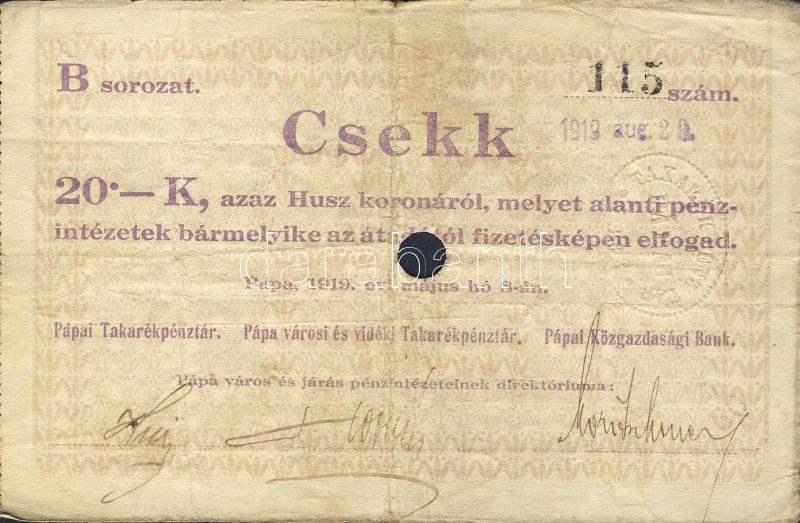 B sorozat. 115 szám.
Csekk
1919 aug. 29.
20·— K, azaz Husz koronáról, melyet alanti pénz-
intézetek bármelyike az átadótól fizetésképen elfogad.
databanth
Pápa, 1919. évi május hó 8-án.
Pápai Takarékpénztár. Pápa városi és vidéki Takarékpénztár. Pápai Közgazdasági Bank.
Pápa város és járás pénzintézeteinek direktóriuma: